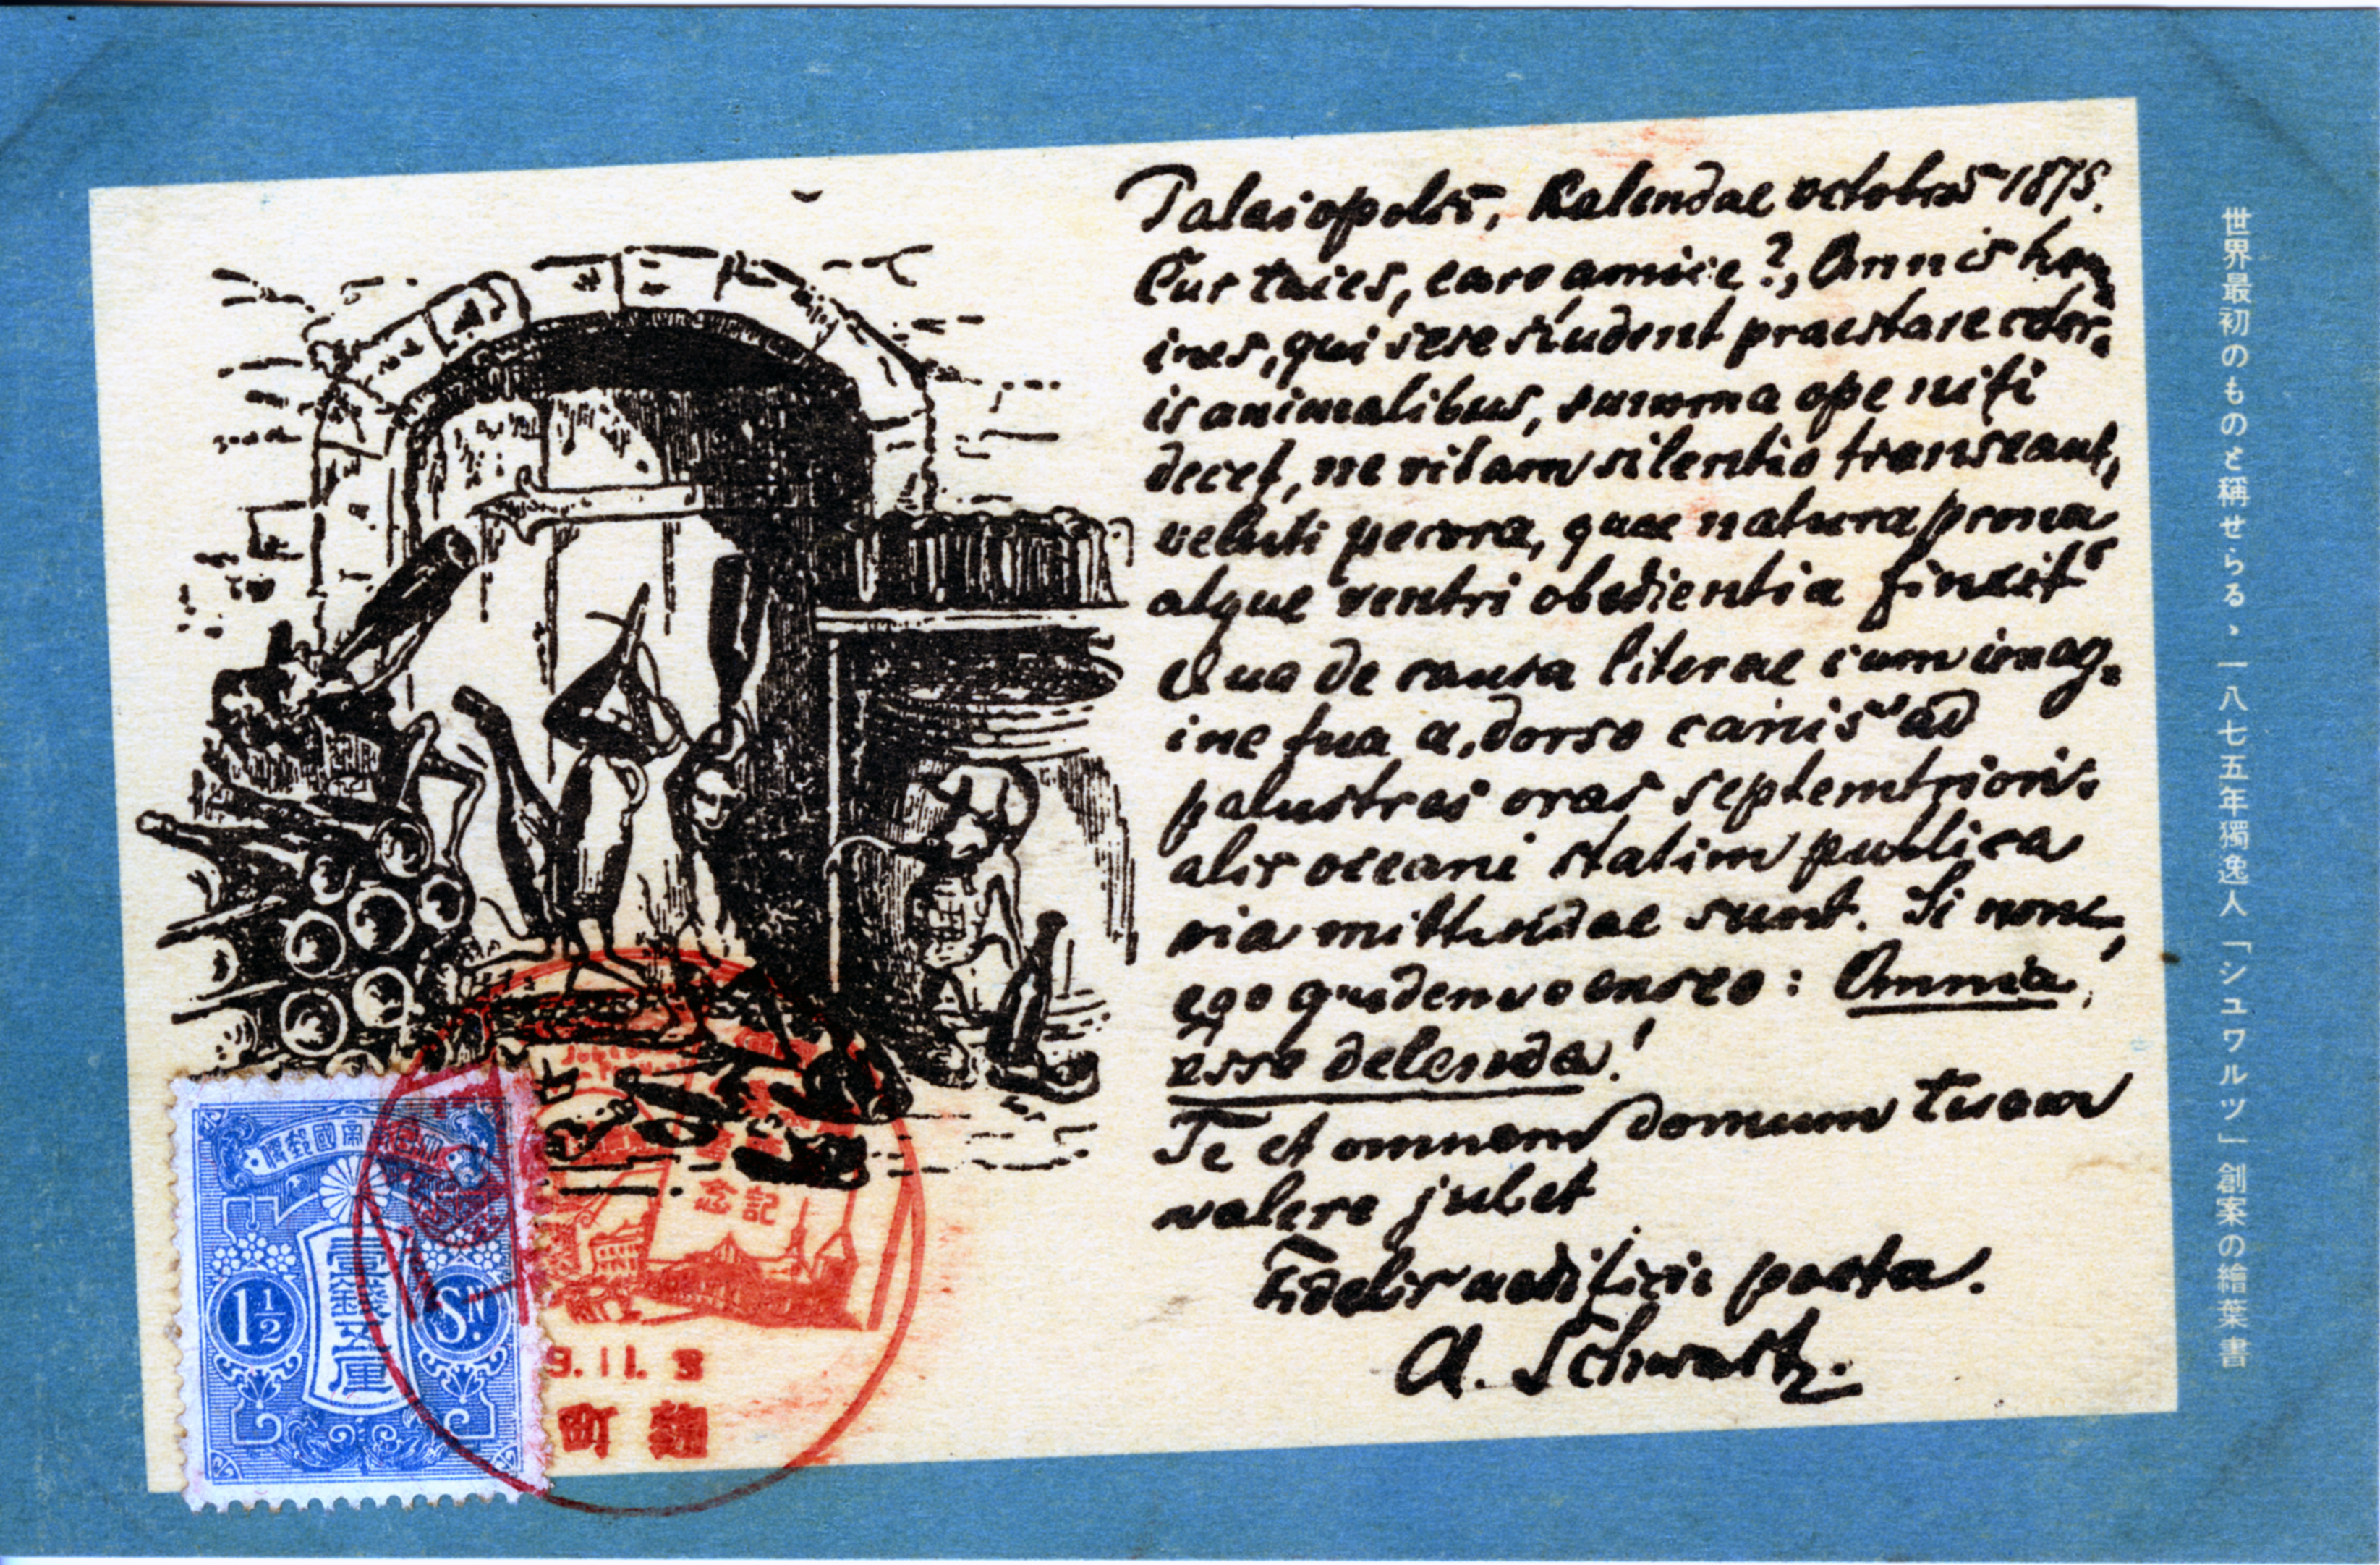 Palaiopolsi, Kalendae octobris 1875.
Cur taces, care amice?, Omnis hom
ines, qui sese student praestare ceter-
is animalibus, summa ope niti
decet, ne vitam silentio transeant,
veluti pecora, quae natura prona
atque ventri obedientia finxit
Qua de causa literae cum imag-
ine tua a, dorso canis" ad
palustras oras septemtrion-
alis oceani statim publica
via mittendae sunt. Si non,
ego quidem censeo: Omnia,
esse delenda!
Te et omnem domum tuam
valere jubet
Fidelis aedificii poeta.
A. Schwartz.
世界最初のものと稱せらる、一八七五年獨逸人「シュワルツ」創案の繪葉書
帝國郵便
壹錢五厘
1½ Sn.
記念
9.11.3